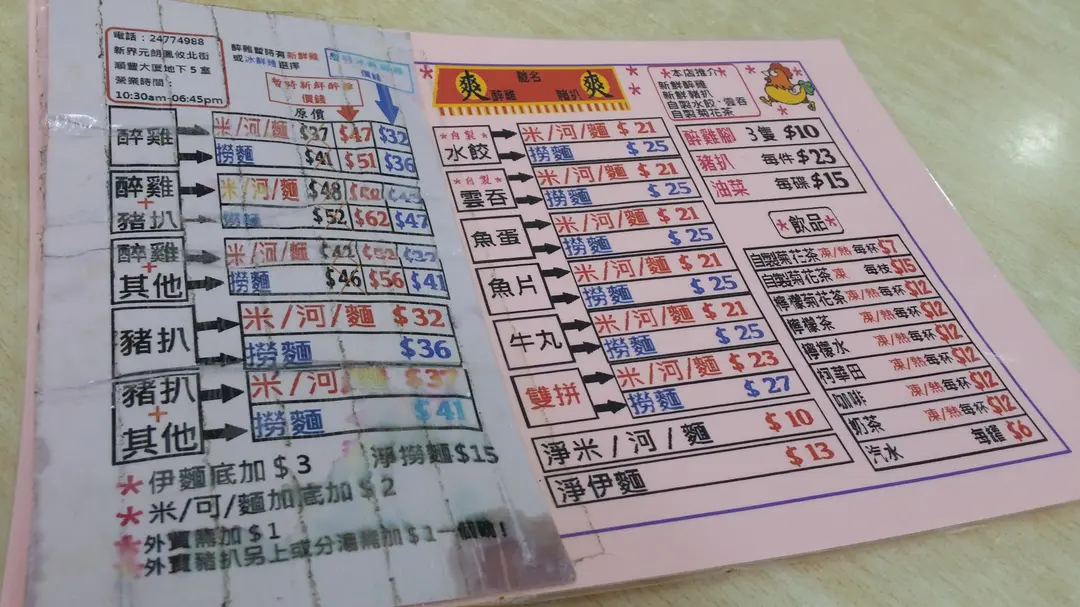 電話：24774988
新界元朗鳳攸北街
順豐大廈地下5室
營業時間：
10:30am-06:45pm
醉雞暫時有新鮮雞
或冰鮮雞選擇
價錢
暫時新鮮醉雞
價錢
原價
醉雞
米/河/麵 $37 $47 $32
撈麵 $41 $51 $36
醉雞+豬扒
米/河/麵 $48
撈麵 $52 $62 $47
醉雞+其他
米/河/麵 $42
撈麵 $46 $56 $41
豬扒
米/河/麵 $32
撈麵 $36
豬扒+其他
米/河
撈麵 $41
*伊麵底加$3 淨撈麵$15
*米/可/麵加底加$2
*外賣需加$1
*外賣豬扒另上或分湯需加$1
爽 馳名 爽
醉雞 豬扒
*自製*
水餃
米/河/麵 $21
撈麵 $25
*自製*
雲吞
米/河/麵 $21
撈麵 $25
魚蛋
米/河/麵 $21
撈麵 $25
魚片
米/河/麵 $21
撈麵 $25
牛丸
米/河/麵 $21
撈麵 $25
雙拼
米/河/麵 $23
撈麵 $27
淨米/河/麵 $10
淨伊麵 $13
*本店推介*
新鮮醉雞
新鮮豬扒
自製水餃·雲吞
自製菊花茶
醉雞腳 3隻 $10
豬扒 每件 $23
油菜 每碟 $15
*飲品*
自製菊花茶 凍/熱每杯 $7
自製菊花茶 凍 每枝 $15
檸檬菊花茶 凍/熱每杯 $12
檸檬茶 凍/熱每杯 $12
檸檬水 凍/熱每杯 $12
何華田 凍/熱每杯 $12
咖啡 凍/熱每杯 $12
奶茶 凍/熱每杯 $12
汽水 每罐 $6